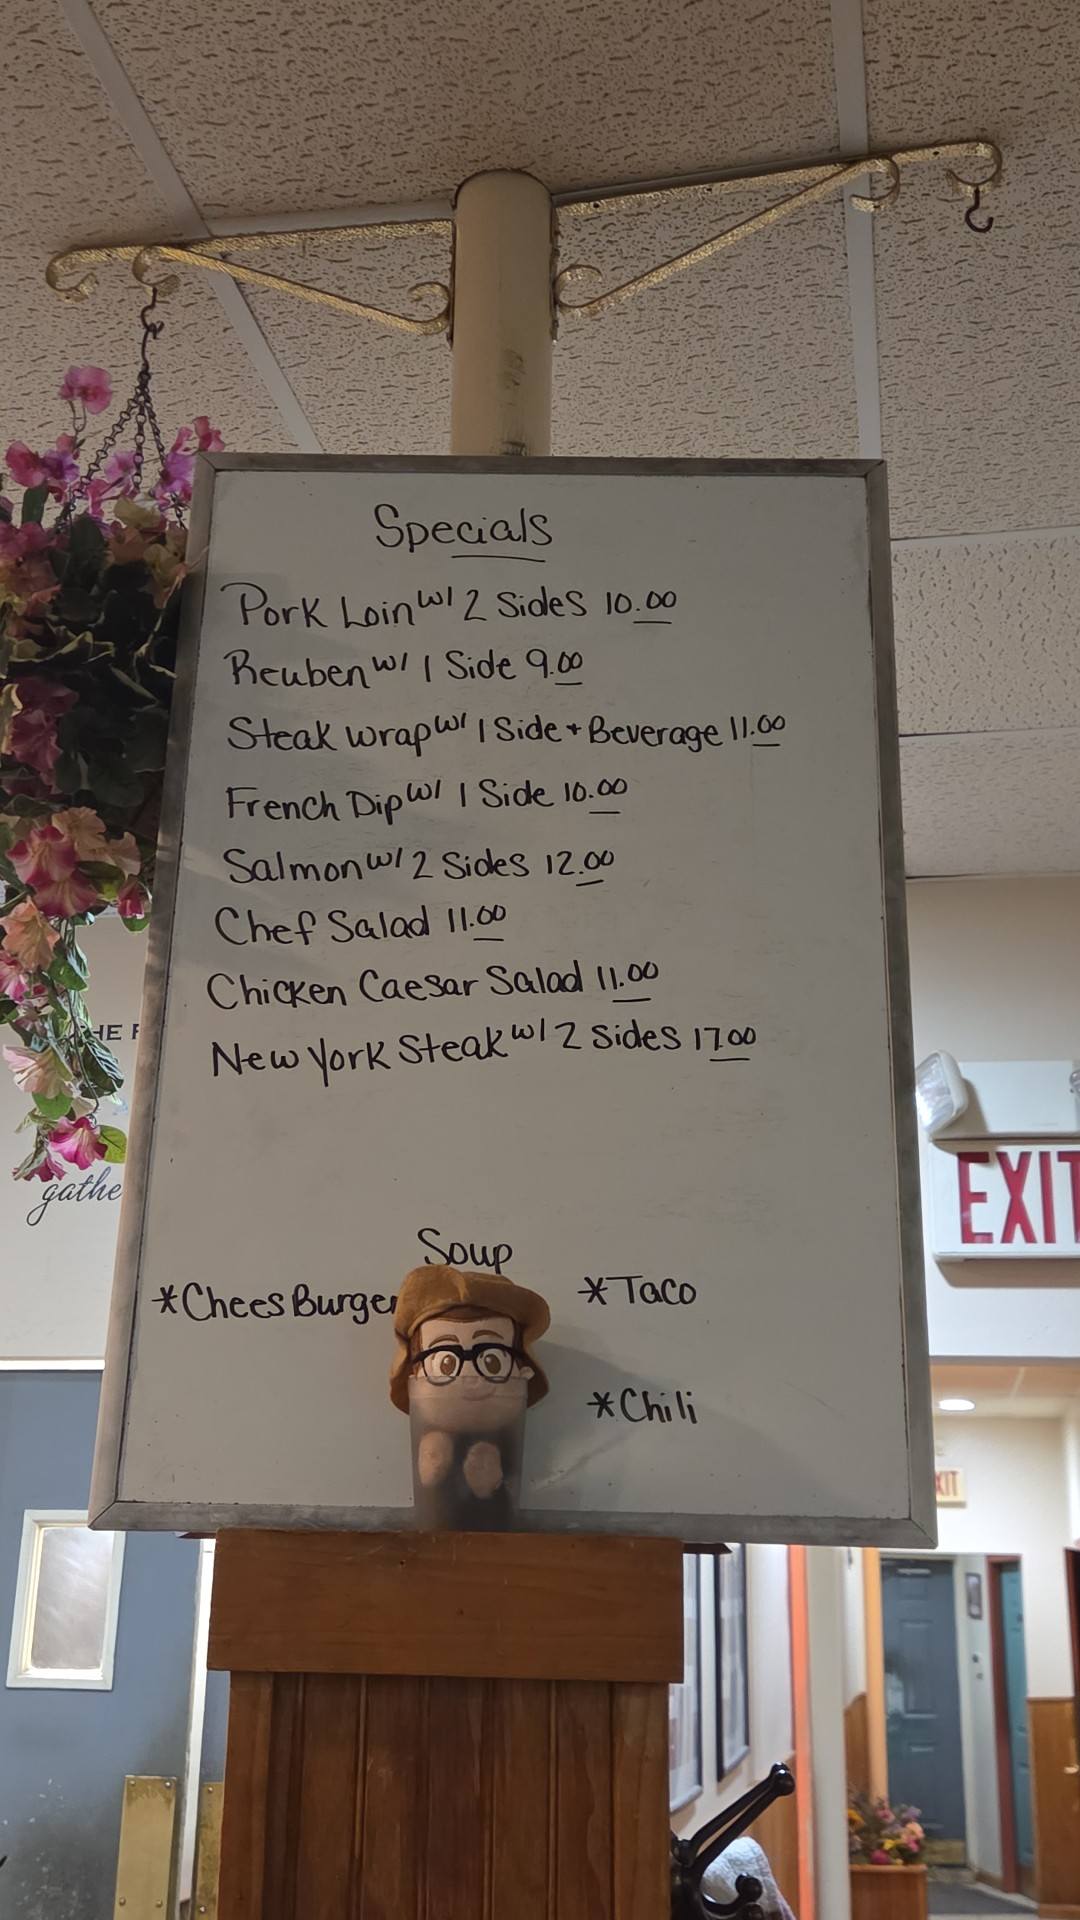 Specials
Pork Loin w/ 2 Sides 10.00
Reuben w/ 1 Side 9.00
Steak wrap w/ 1 Side + Beverage 11.00
French Dip w/ 1 Side 10.00
Salmon w/ 2 Sides 12.00
Chef Salad 11.00
Chicken Caesar Salad 11.00
New York Steak w/ 2 Sides 17.00
Soup
*Chees Burger
*Taco
*Chili
EXIT